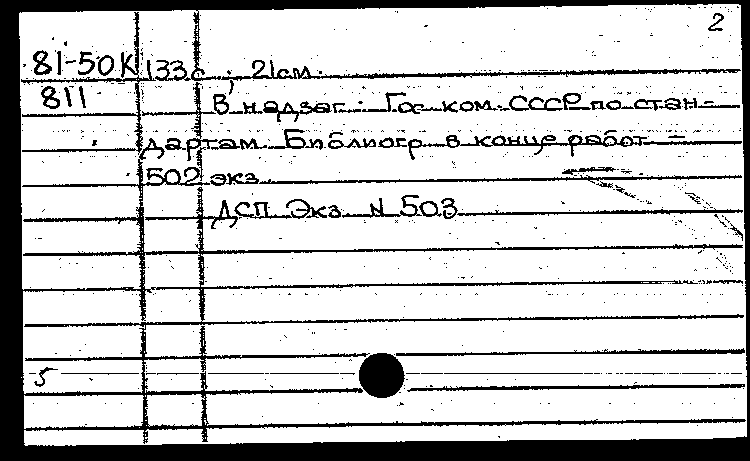 2
81-50К 133с ; 21см.
811 В надзаг.: Гос. ком. СССР по стан-
дартам. Библиогр. в конце работ. –
502 экз.
ДСП Экз. N 503
5